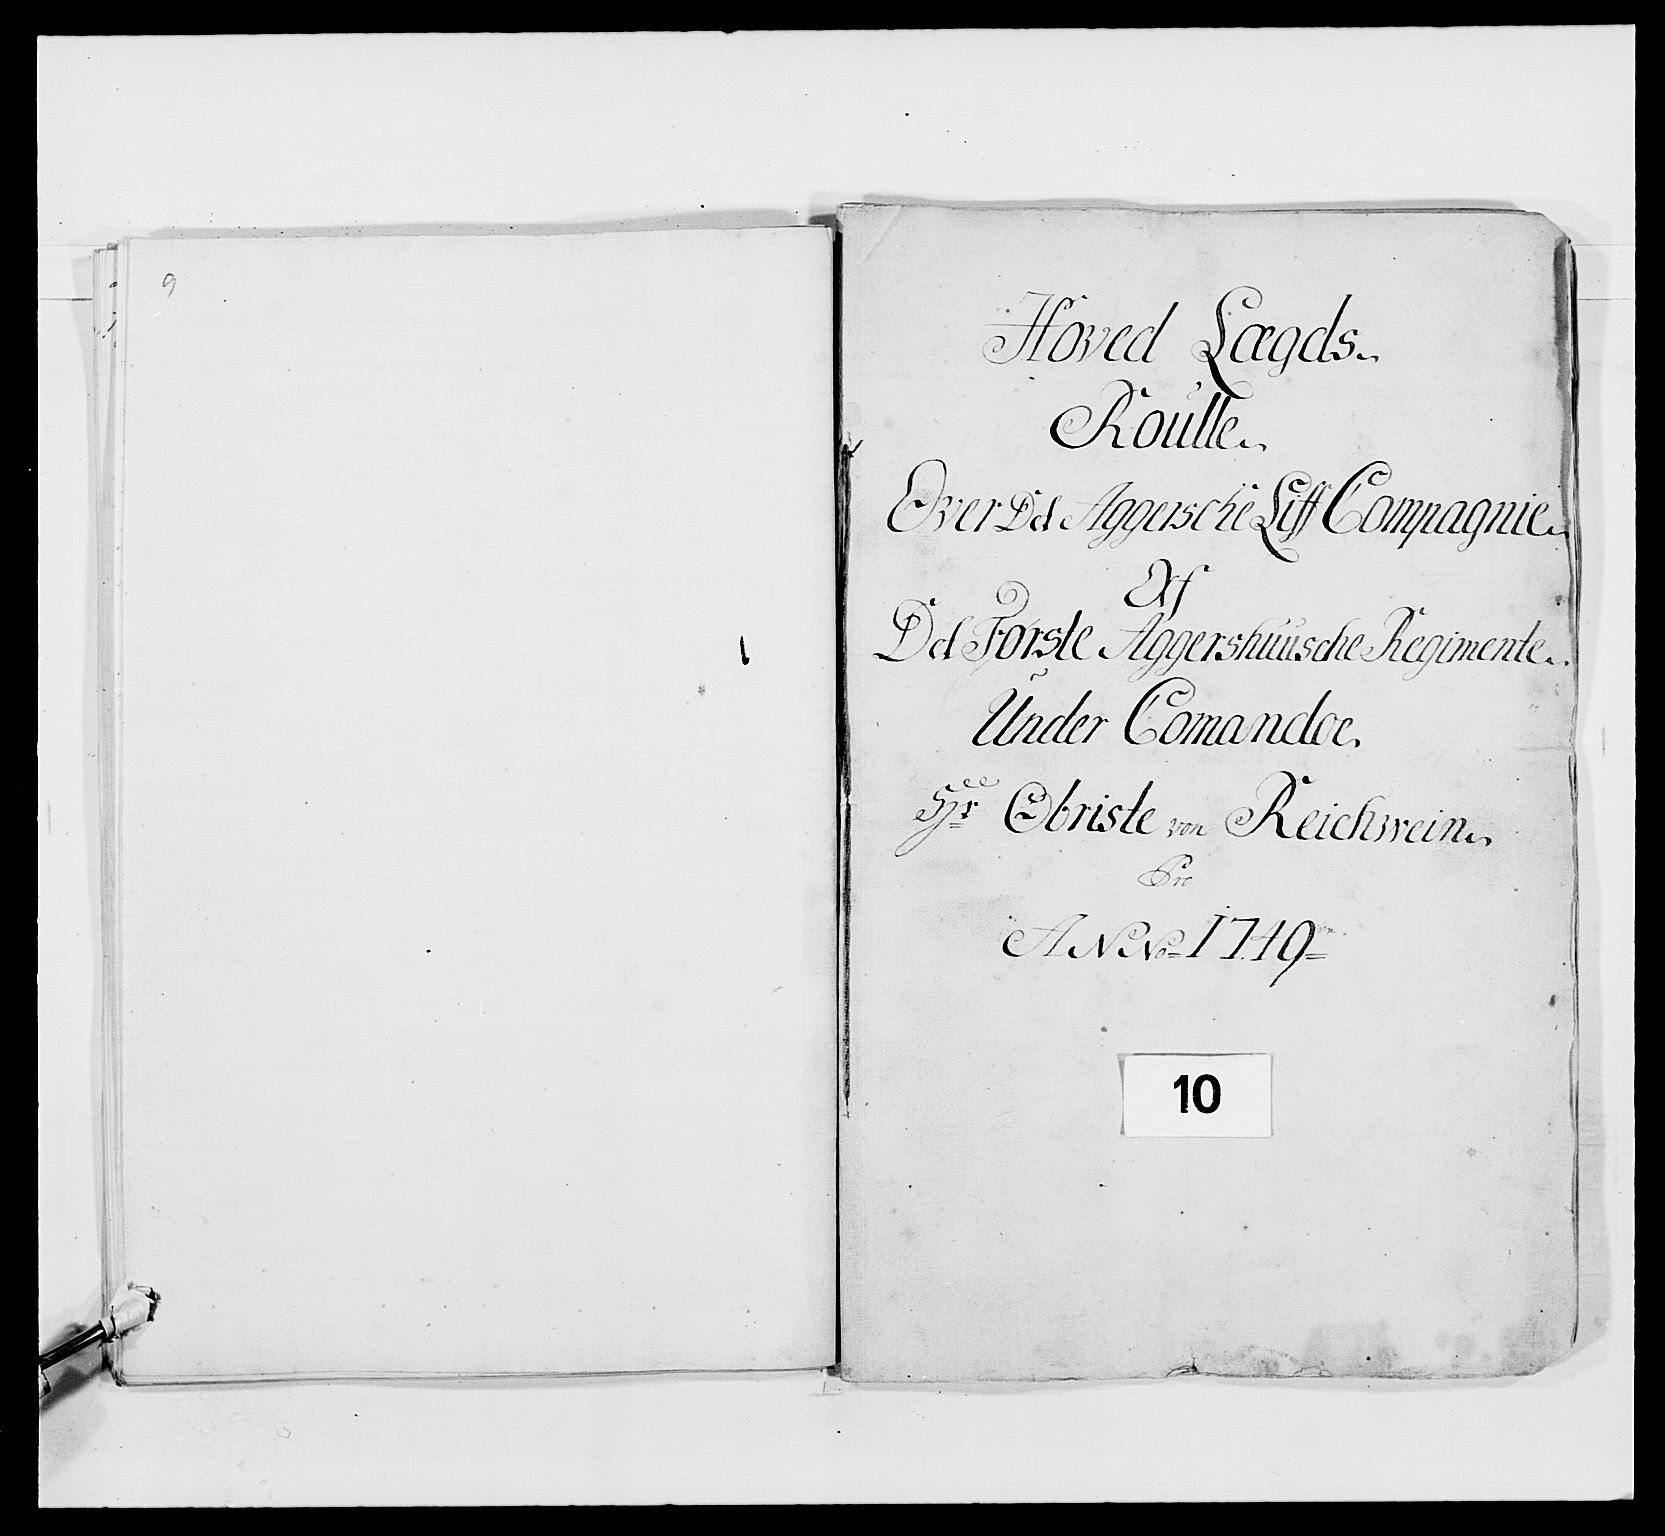 9
Hoved Lægds
Roulle
Over Det Aggersche Liff Compagnie
Af
Det Förste Aggershuusche Regimente
Under Comandoe
Hr Obriste von Reichwein
Pro
ANNo 1749
10